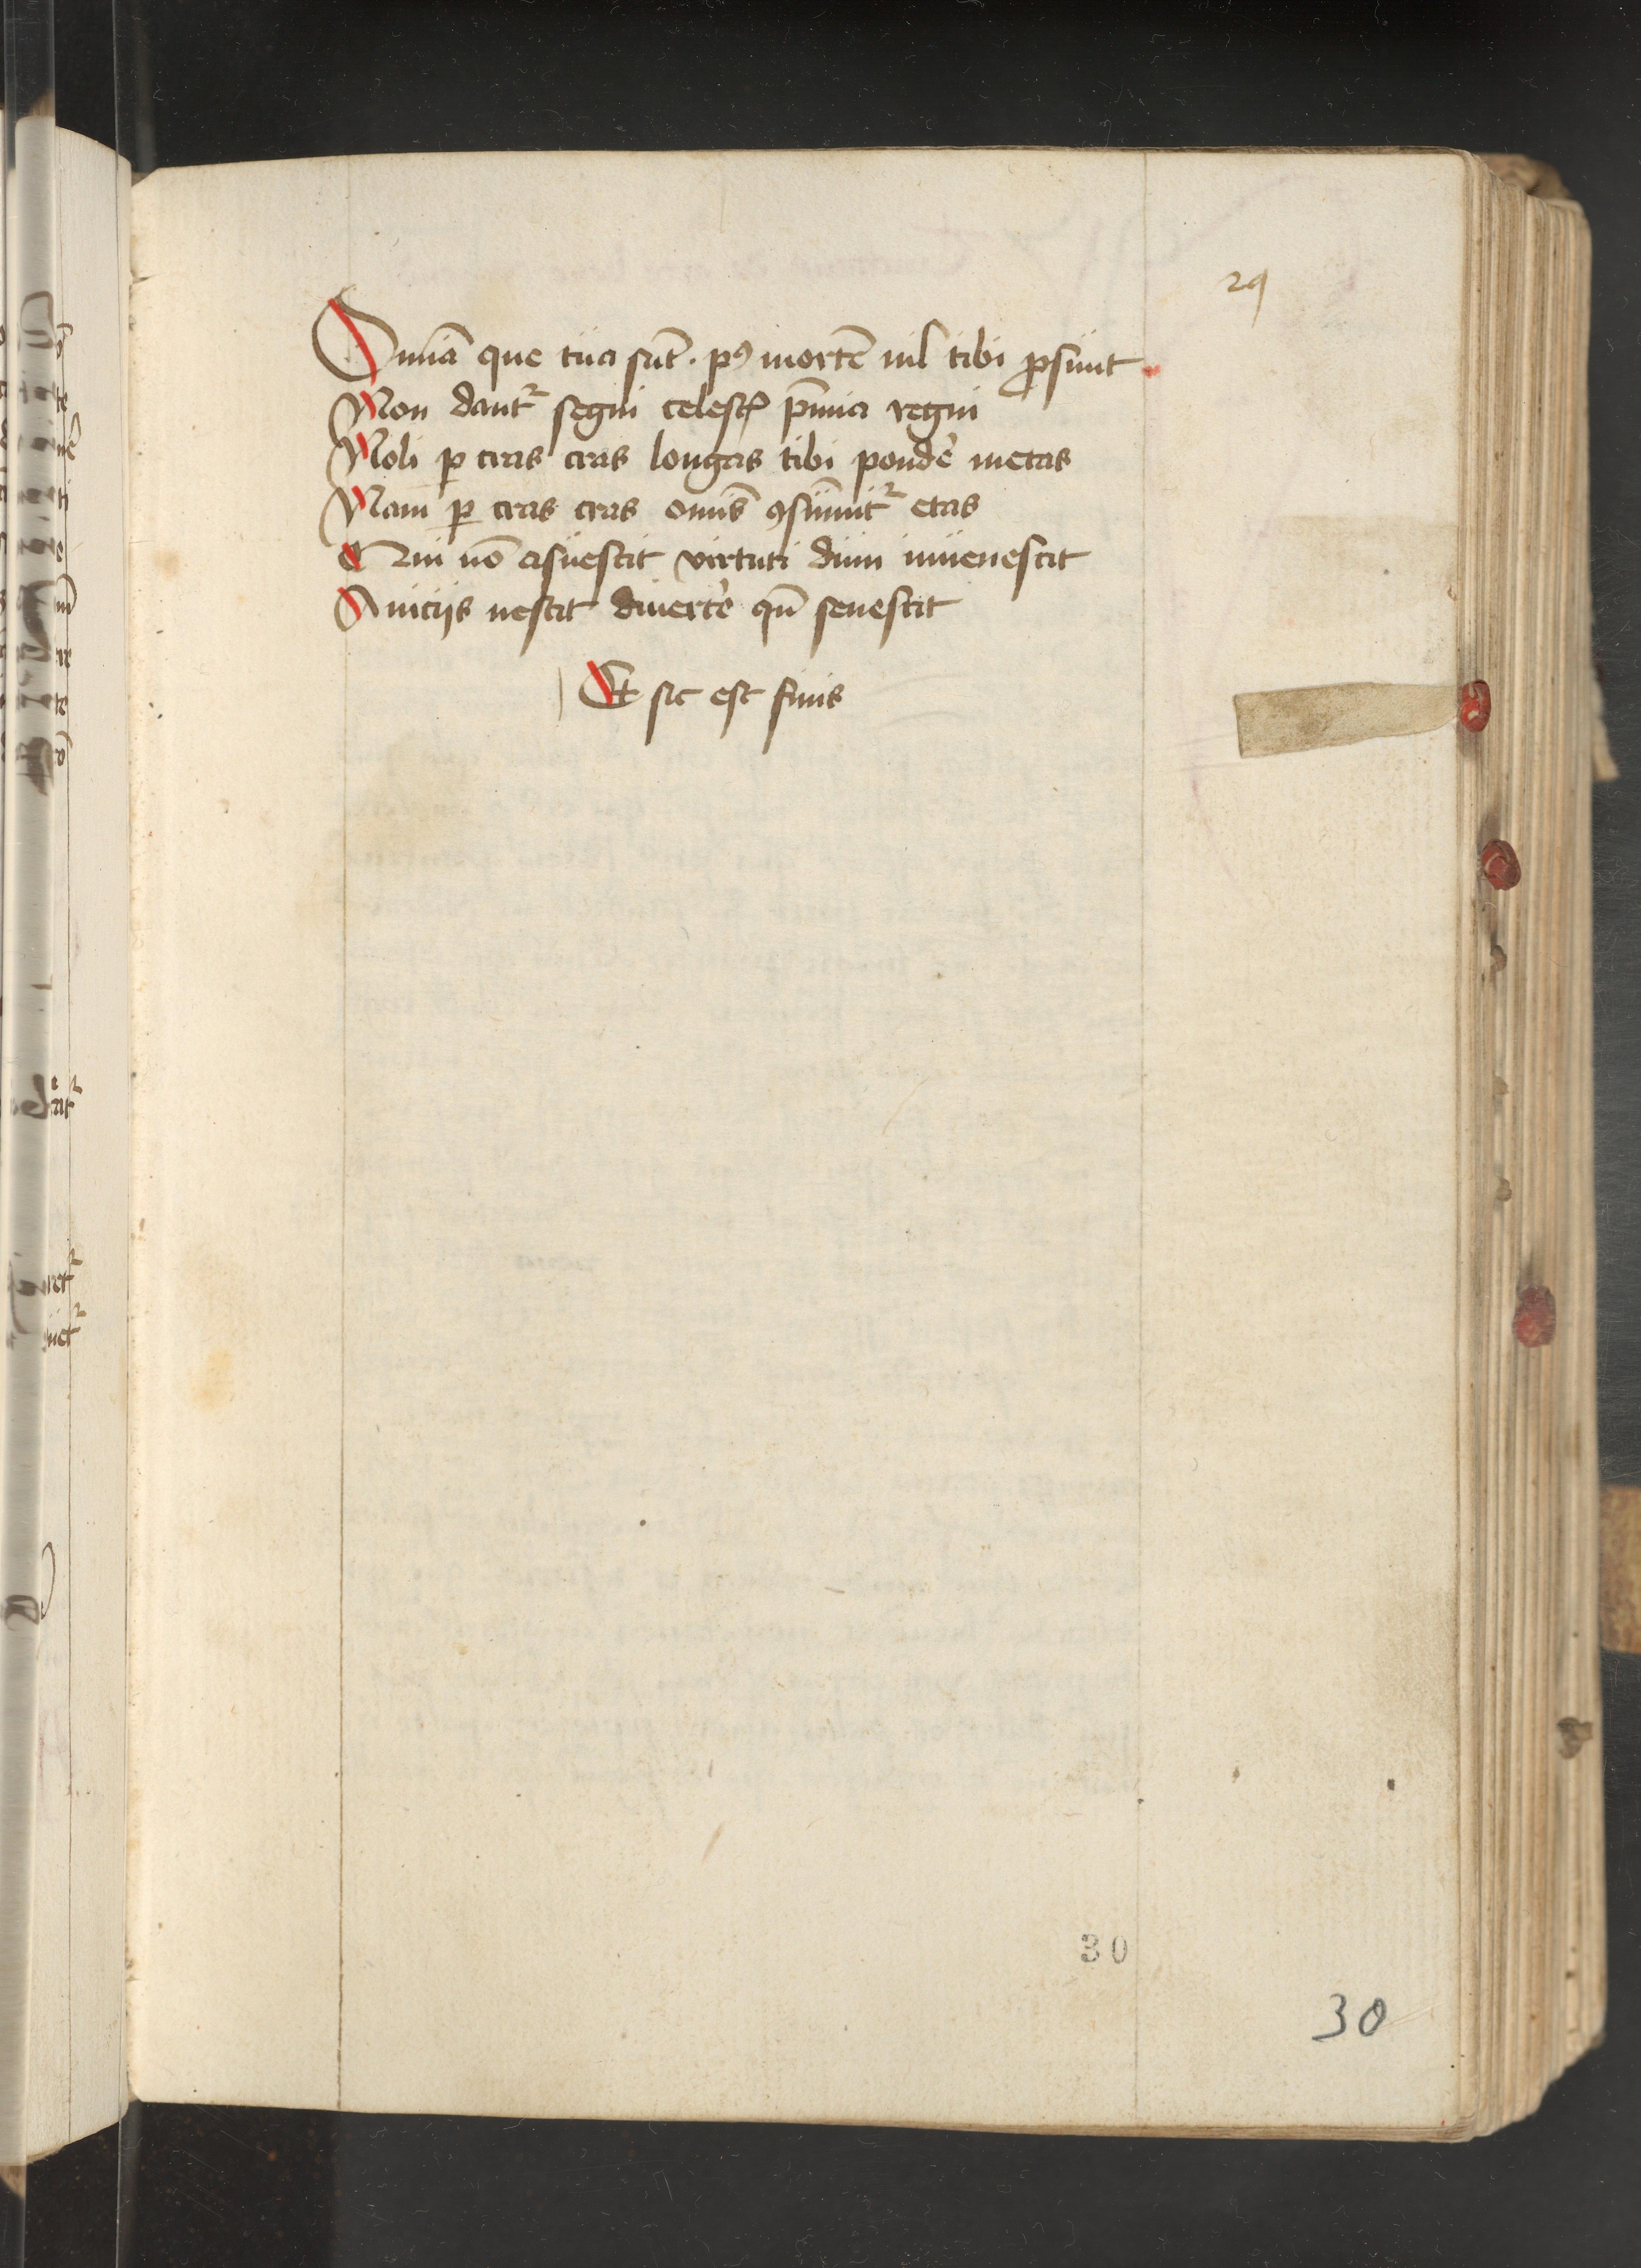 29
Om̄ia que tua sūt · pꝰ mortē nil tibi ꝓsunt
Non dantᷣ segni celestꝭ p̄mia regni
Noli ꝑ cras cras longas tibi pondēˀ metas
Nam ꝑ cras cras omīs ꝯsūmitᷣ etas
Qui nō asuescit virtuti dum iuuenescit
A uicijs nescit diuertēˀ qn̄ senescit
Et sic est finis
30
30